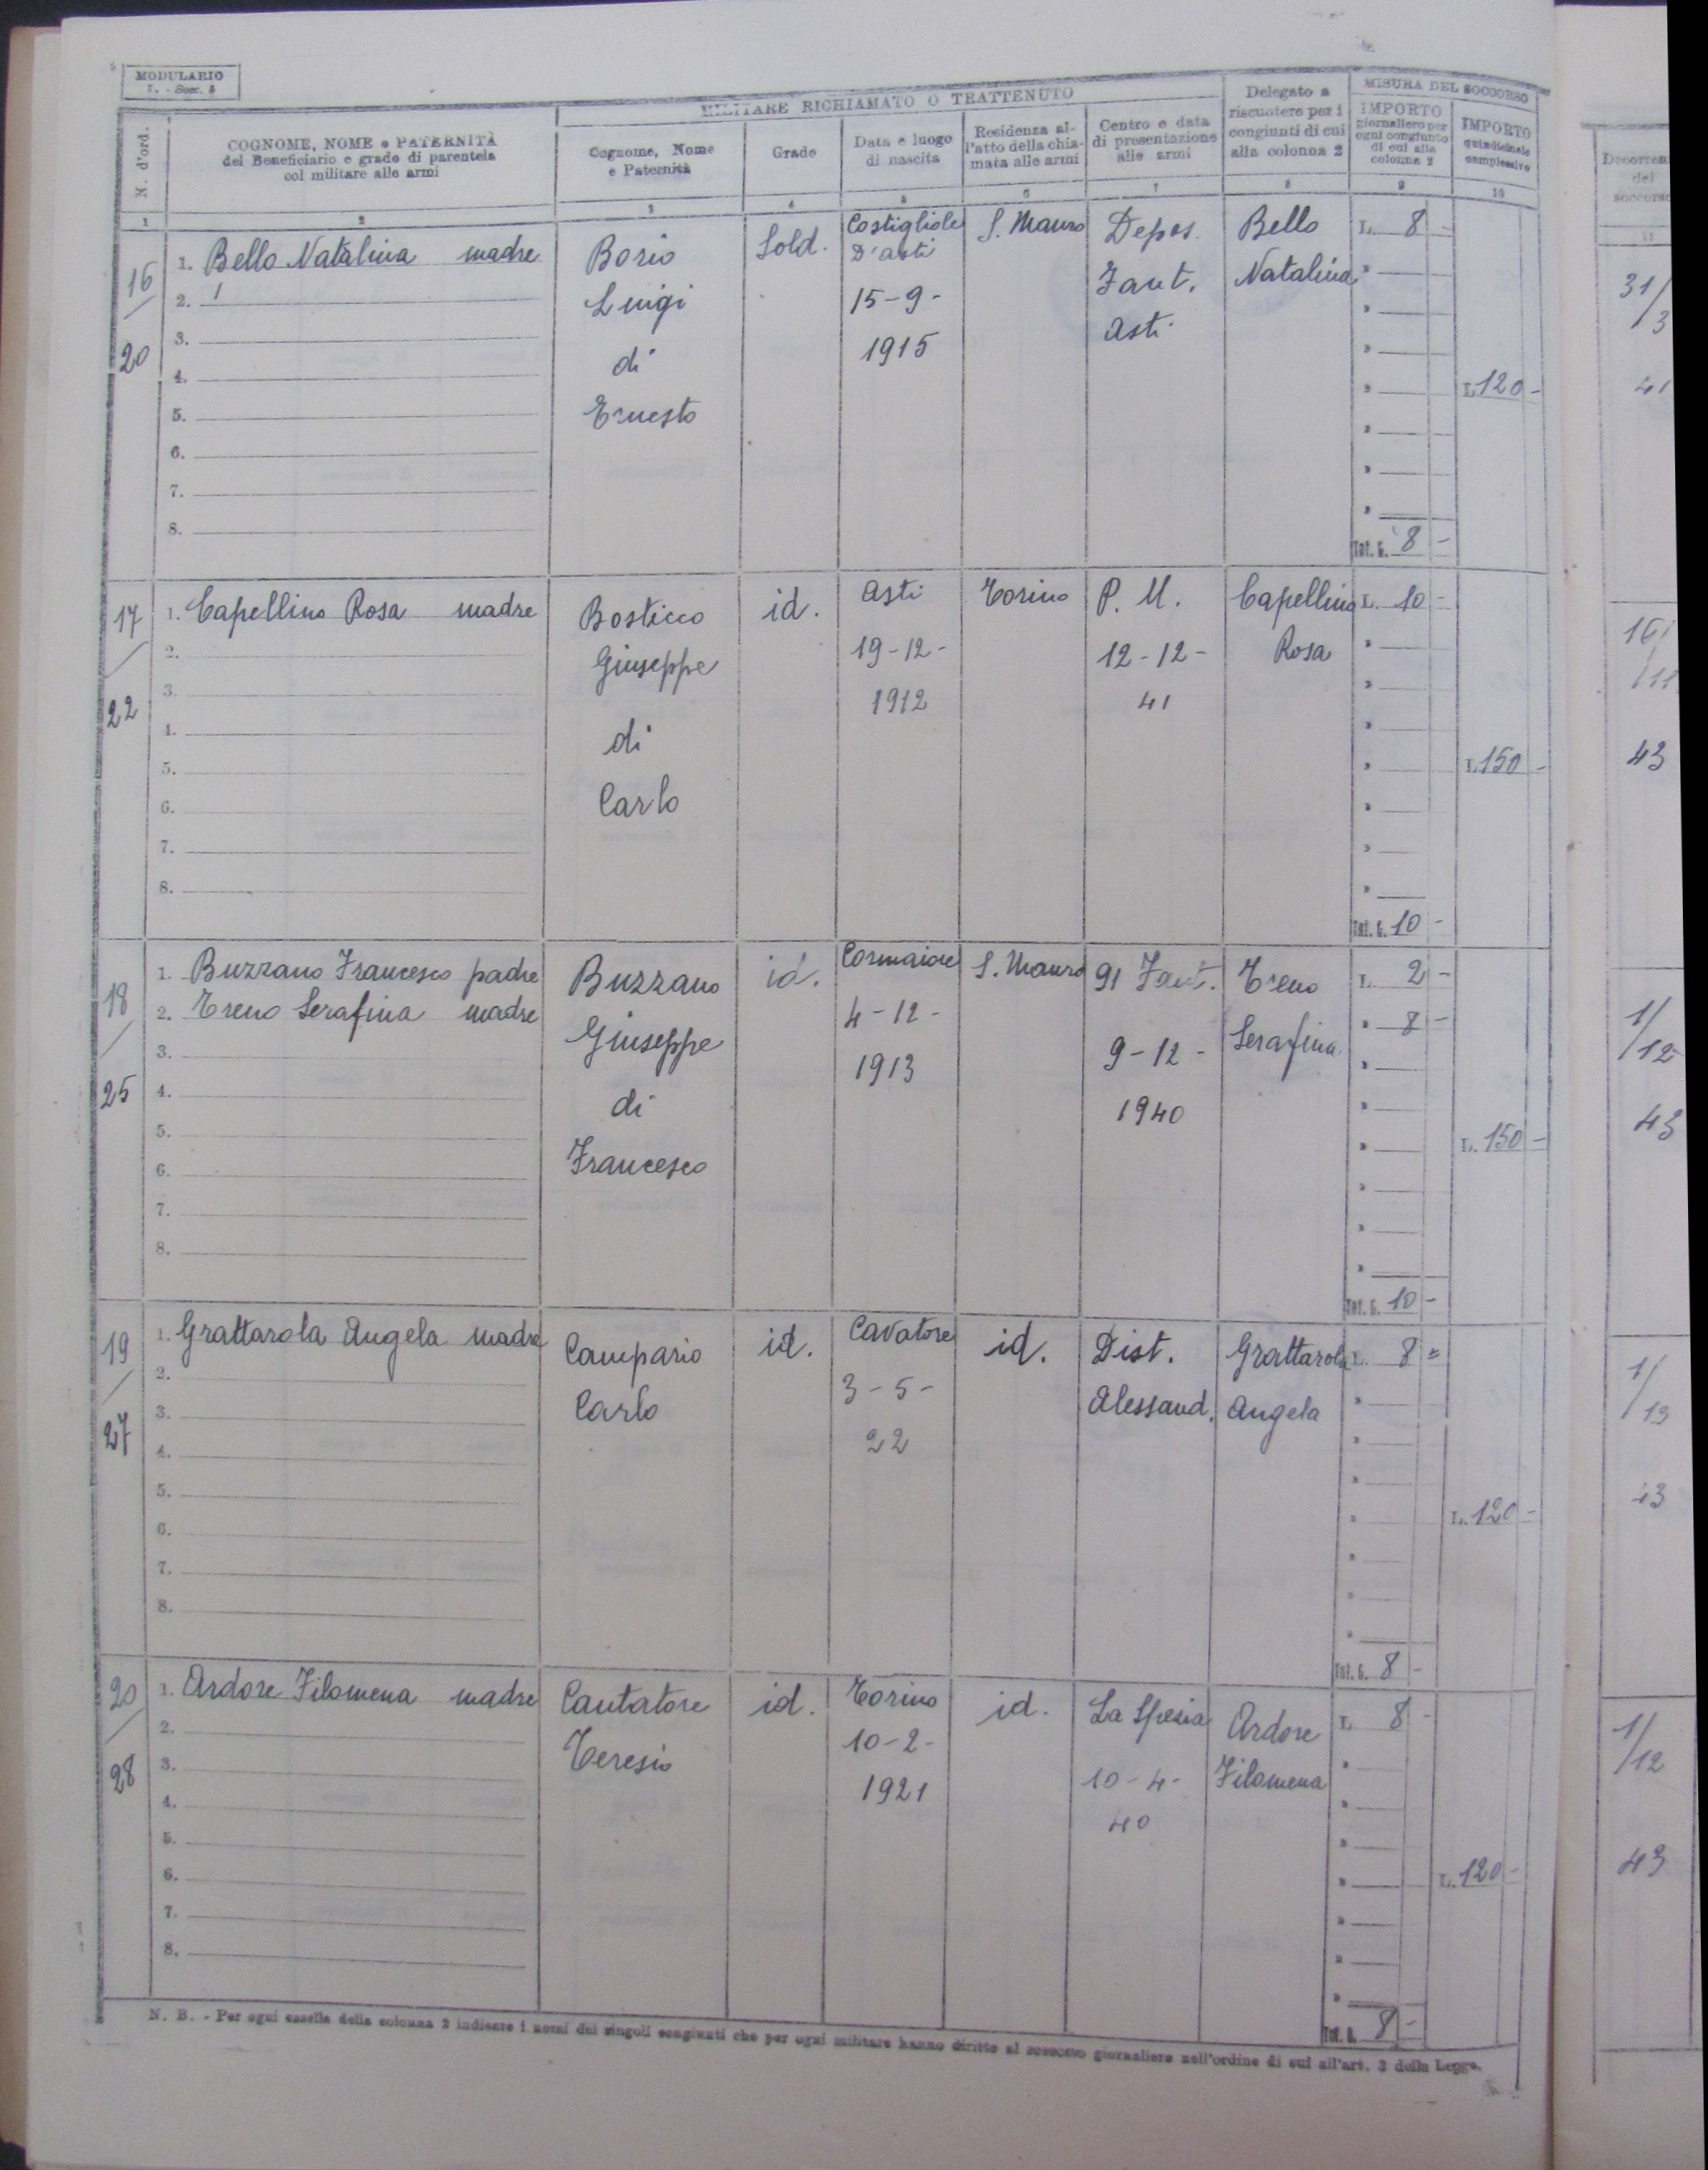 MODULARIO
I. - Socc. 5
N. d'ord.
COGNOME, NOME e PATERNITÀ
del Beneficiario e grado di parentela
col militare alle armi
MILITARE RICHIAMATO O TRATTENUTO
Cognome, Nome
e Paternità
Grado
Data e luogo
di nascita
Residenza al-
l'atto della chia-
mata alle armi
Centro e data
di presentazione
alle armi
Delegato a
riscuotere per i
congiunti di cui
alla colonna 2
MISURA DEL SOCCORSO
IMPORTO
giornaliero per
ogni congiunto
di cui alla
colonna 2
IMPORTO
quindicinale
complessivo
Decorren
del
soccorso
1 2 3 4 5 6 7 8 9 10 11
16/20
1. Bello Natalina madre
2.
3.
4.
5.
6.
7.
8.
Borio
Luigi
di
Ernesto
Sold.
Costigliole
D'asti
15-9-
1915
S. Mauro
Depos.
Fant.
Asti
Bello
Natalina
L. 8 -
Tot. G. 8 -
L. 120 -
31/3
41
17/22
1. Capellino Rosa madre
2.
3.
4.
5.
6.
7.
8.
Bosticco
Giuseppe
di
Carlo
id.
Asti
19-12-
1912
Torino
P. M.
12-12-
41
Capellino
Rosa
L. 10 -
Tot. G. 10 -
L. 150 -
16/11
43
18/25
1. Buzzano Francesco padre
2. Treno Serafina madre
3.
4.
5.
6.
7.
8.
Buzzano
Giuseppe
di
Francesco
id.
Cormaiore
4-12-
1913
S. Mauro
91 Fant.
9-12-
1940
Treno
Serafina
L. 2 -
" 8 -
Tot. G. 10 -
L. 150 -
1/12
43
19/27
1. Grattarola Angela madre
2.
3.
4.
5.
6.
7.
8.
Campario
Carlo
id.
Cavatore
3-5-
22
id.
Dist.
Alessand.
Grattarola
Angela
L. 8 =
Tot. G. 8 -
L. 120 -
43
20/28
1. Ardore Filomena madre
2.
3.
4.
5.
6.
7.
8.
Cantatore
Teresio
id.
Torino
10-2-
1921
id.
La Spezia
10-4-
40
Ardore
Filomena
L. 8 -
Tot. G. 8 -
L. 120 -
1/12
43
N. B. - Per ogni casella della colonna 2 indicare i nomi dei singoli congiunti che per ogni militare hanno diritto al soccorso giornaliero nell'ordine di cui all'art. 3 della Legge.